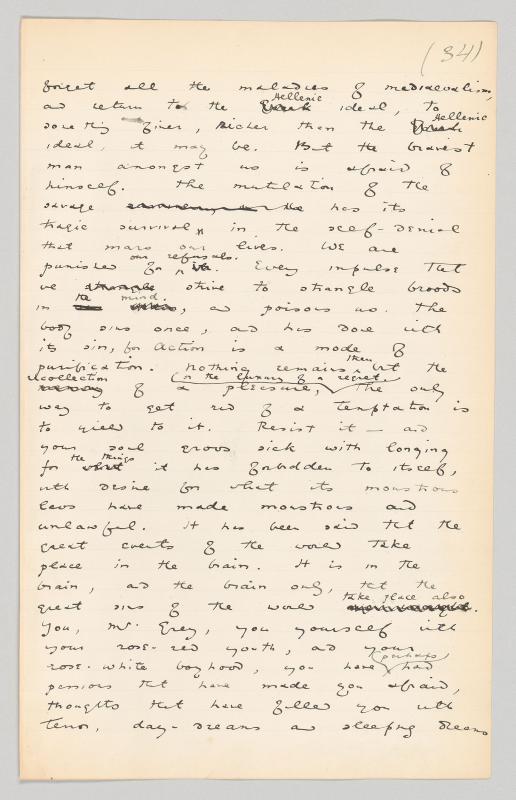 (34)
forget all the maladies of mediaevalism,
and return to the Hellenic ideal, to
something finer, richer than the Hellenic
ideal, it may be. But the bravest
man amongst us is afraid of
himself. The mutilation of the
savage has its
tragic survival in the self-denial
that mars our lives. We are
punished for our refusals. Every impulse that
we strive to strangle broods
in the mind, and poisons us. The
body sins once, and has done with
its sin, for action is a mode of
purification. Nothing remains then but the
recollection of a pleasure, or the luxury of a regret. The only
way to get rid of a temptation is
to yield to it. Resist it — and
your soul grows sick with longing
for the things it has forbidden to itself,
with desire for what its monstrous
laws have made monstrous and
unlawful. It has been said that the
great events of the world take
place in the brain. It is in the
brain, and the brain only, that the
great sins of the world take place also.
You, Mr Grey, you yourself with
your rose-red youth, and your
rose-white boyhood, you have perhaps had
passions that have made you afraid,
thoughts that have filled you with
terror, day-dreams and sleeping dreams